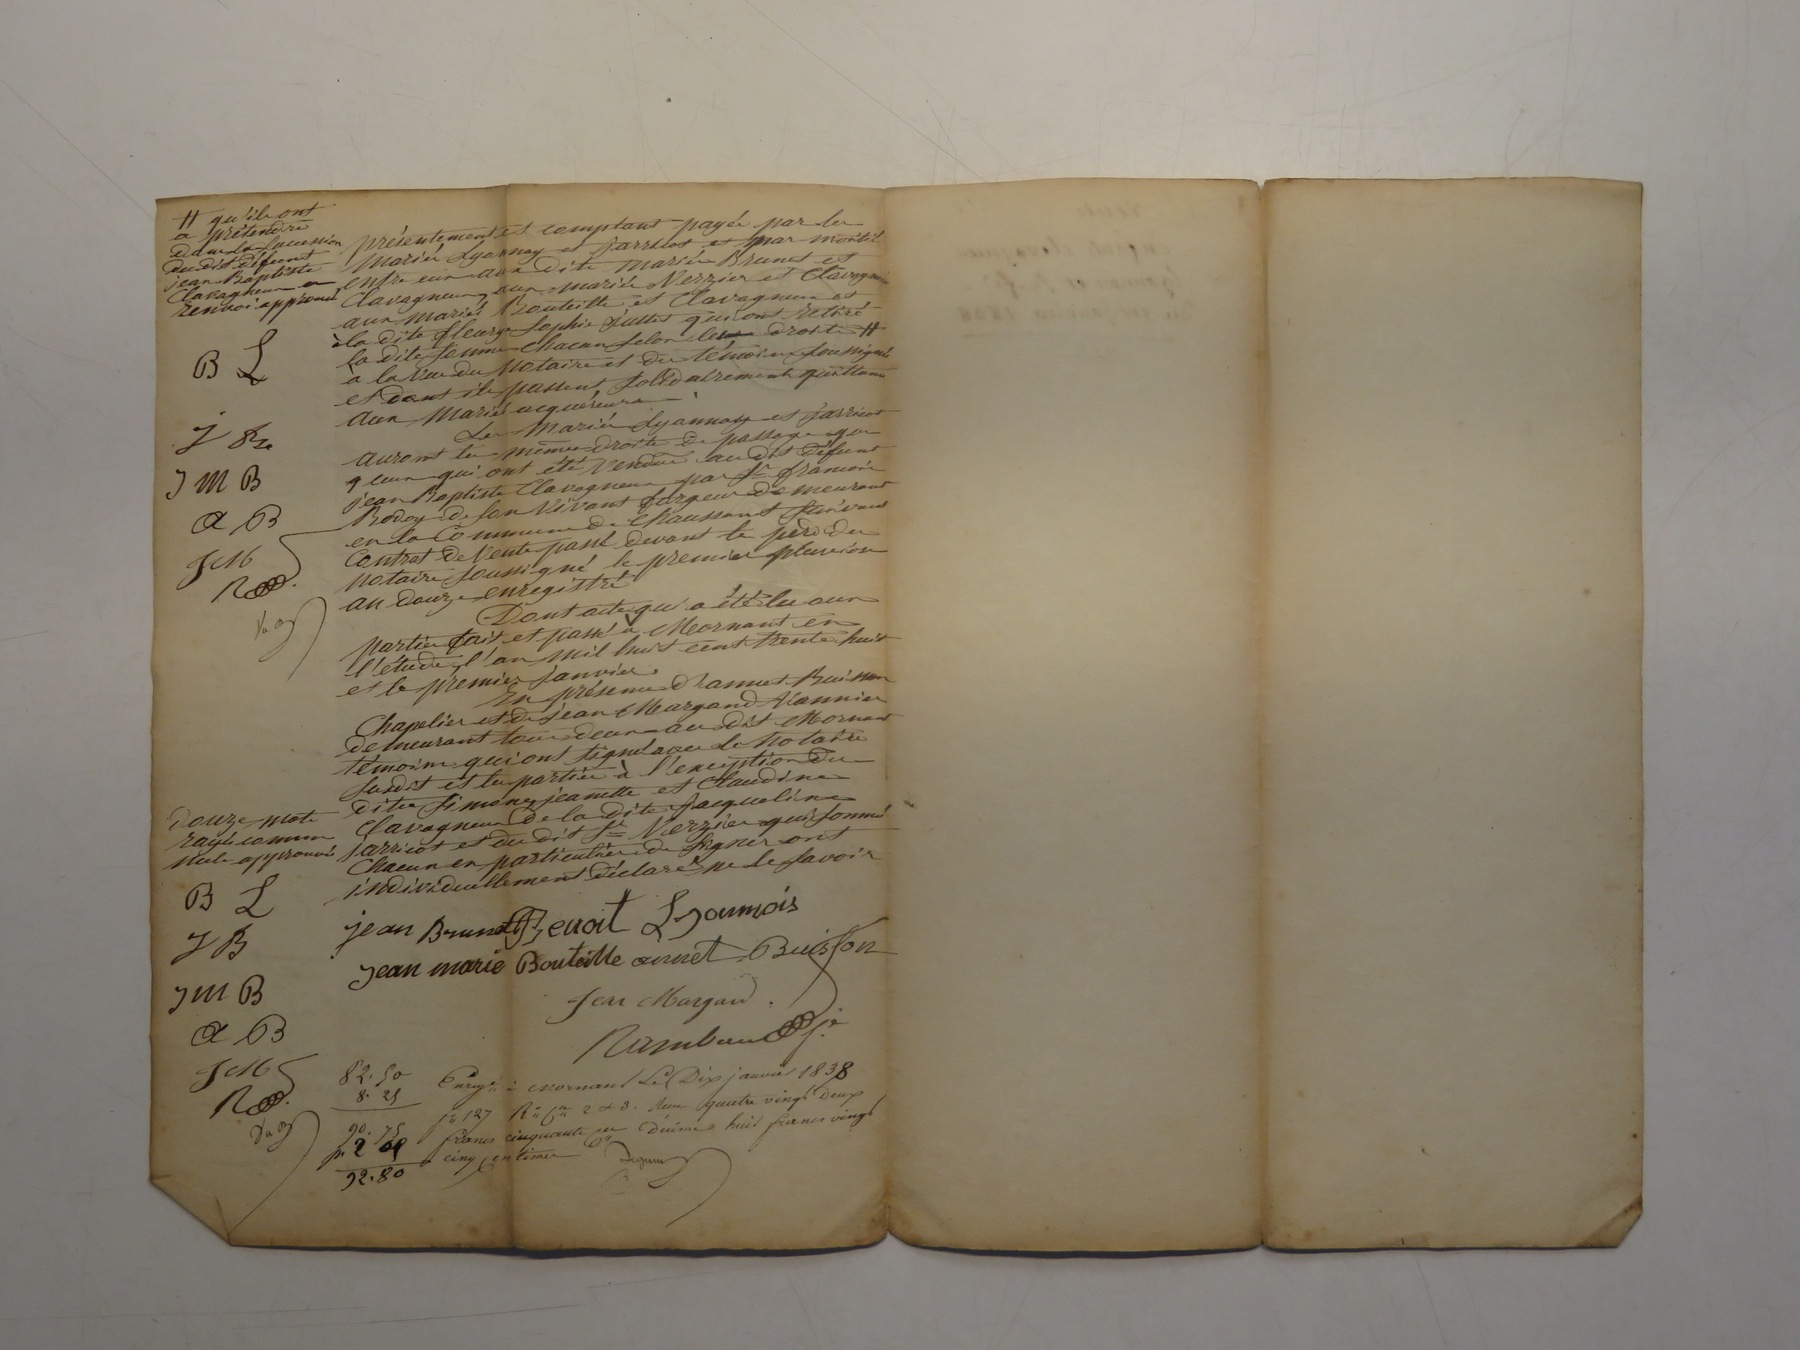 # qu'ils ont
a prétendre
dans la succession
du dit défunt
jean Baptiste
Clavagneux
renvoi approuvé
B L
J Br
J M B
a B
J M
R
présentement et comptant payée par les
Mariés Lyonnay et Jarricot et par moitié
entre eux aux dits Mariés Brunet et
Clavagneux, aux mariés Verzier et Clavagneux
aux mariés Bouteille et Clavagneux et
à la dite fleurye Sophie qui ont retiré
la dite somme chacun selon leurs droits #
à la vue du Notaire et des témoins soussignés
et dont ils passent solidairement quittance
aux Mariés acquéreurs
Les Mariés Lyonnay et Jarricot
auront les mêmes droits de passage que
ceux qui ont été vendus au dit défunt
jean Baptiste Clavagneux par Sr françois
de son vivant fargeur demeurant
en la Commune de Chaussant suivant
Contrat de Vente passé devant le père du
notaire soussigné le premier pluviose
an douze enregistré
Dont acte qui a été lu aux
parties fait et passé à Mornant en
l'étude, l'an mil huit cent trente huit
et le premier janvier.
En présence d'annet Buisson
Chapelier et de jean Margand Vannier
demeurant tous deux au dit Mornant
témoins qui ont signé avec le Notaire
susdit et les parties à l'exception des
dites Simone, jeanette et Claudine
Clavagneux de la dite jacqueline
Jarricot et du dit Sr Verzier qui sommés
Chacun en particulier de signer ont
individuellement déclaré ne le savoir
douze mots
rayés comme
nuls approuvés
B L
J B
J M B
a B
J M
R
jean Brunet Benoit Lyonnois
jean marie Bouteille annet Buisson
jean Margand
Rambaud je
82.50
8.25
90.75
2 05
92.80
Enregé à mornant Le Dix janvier 1838
fo 127 Ro Ces 2 et 3. Reçu quatre vingt deux
francs cinquante ces Décime huit francs vingt
cinq centimes